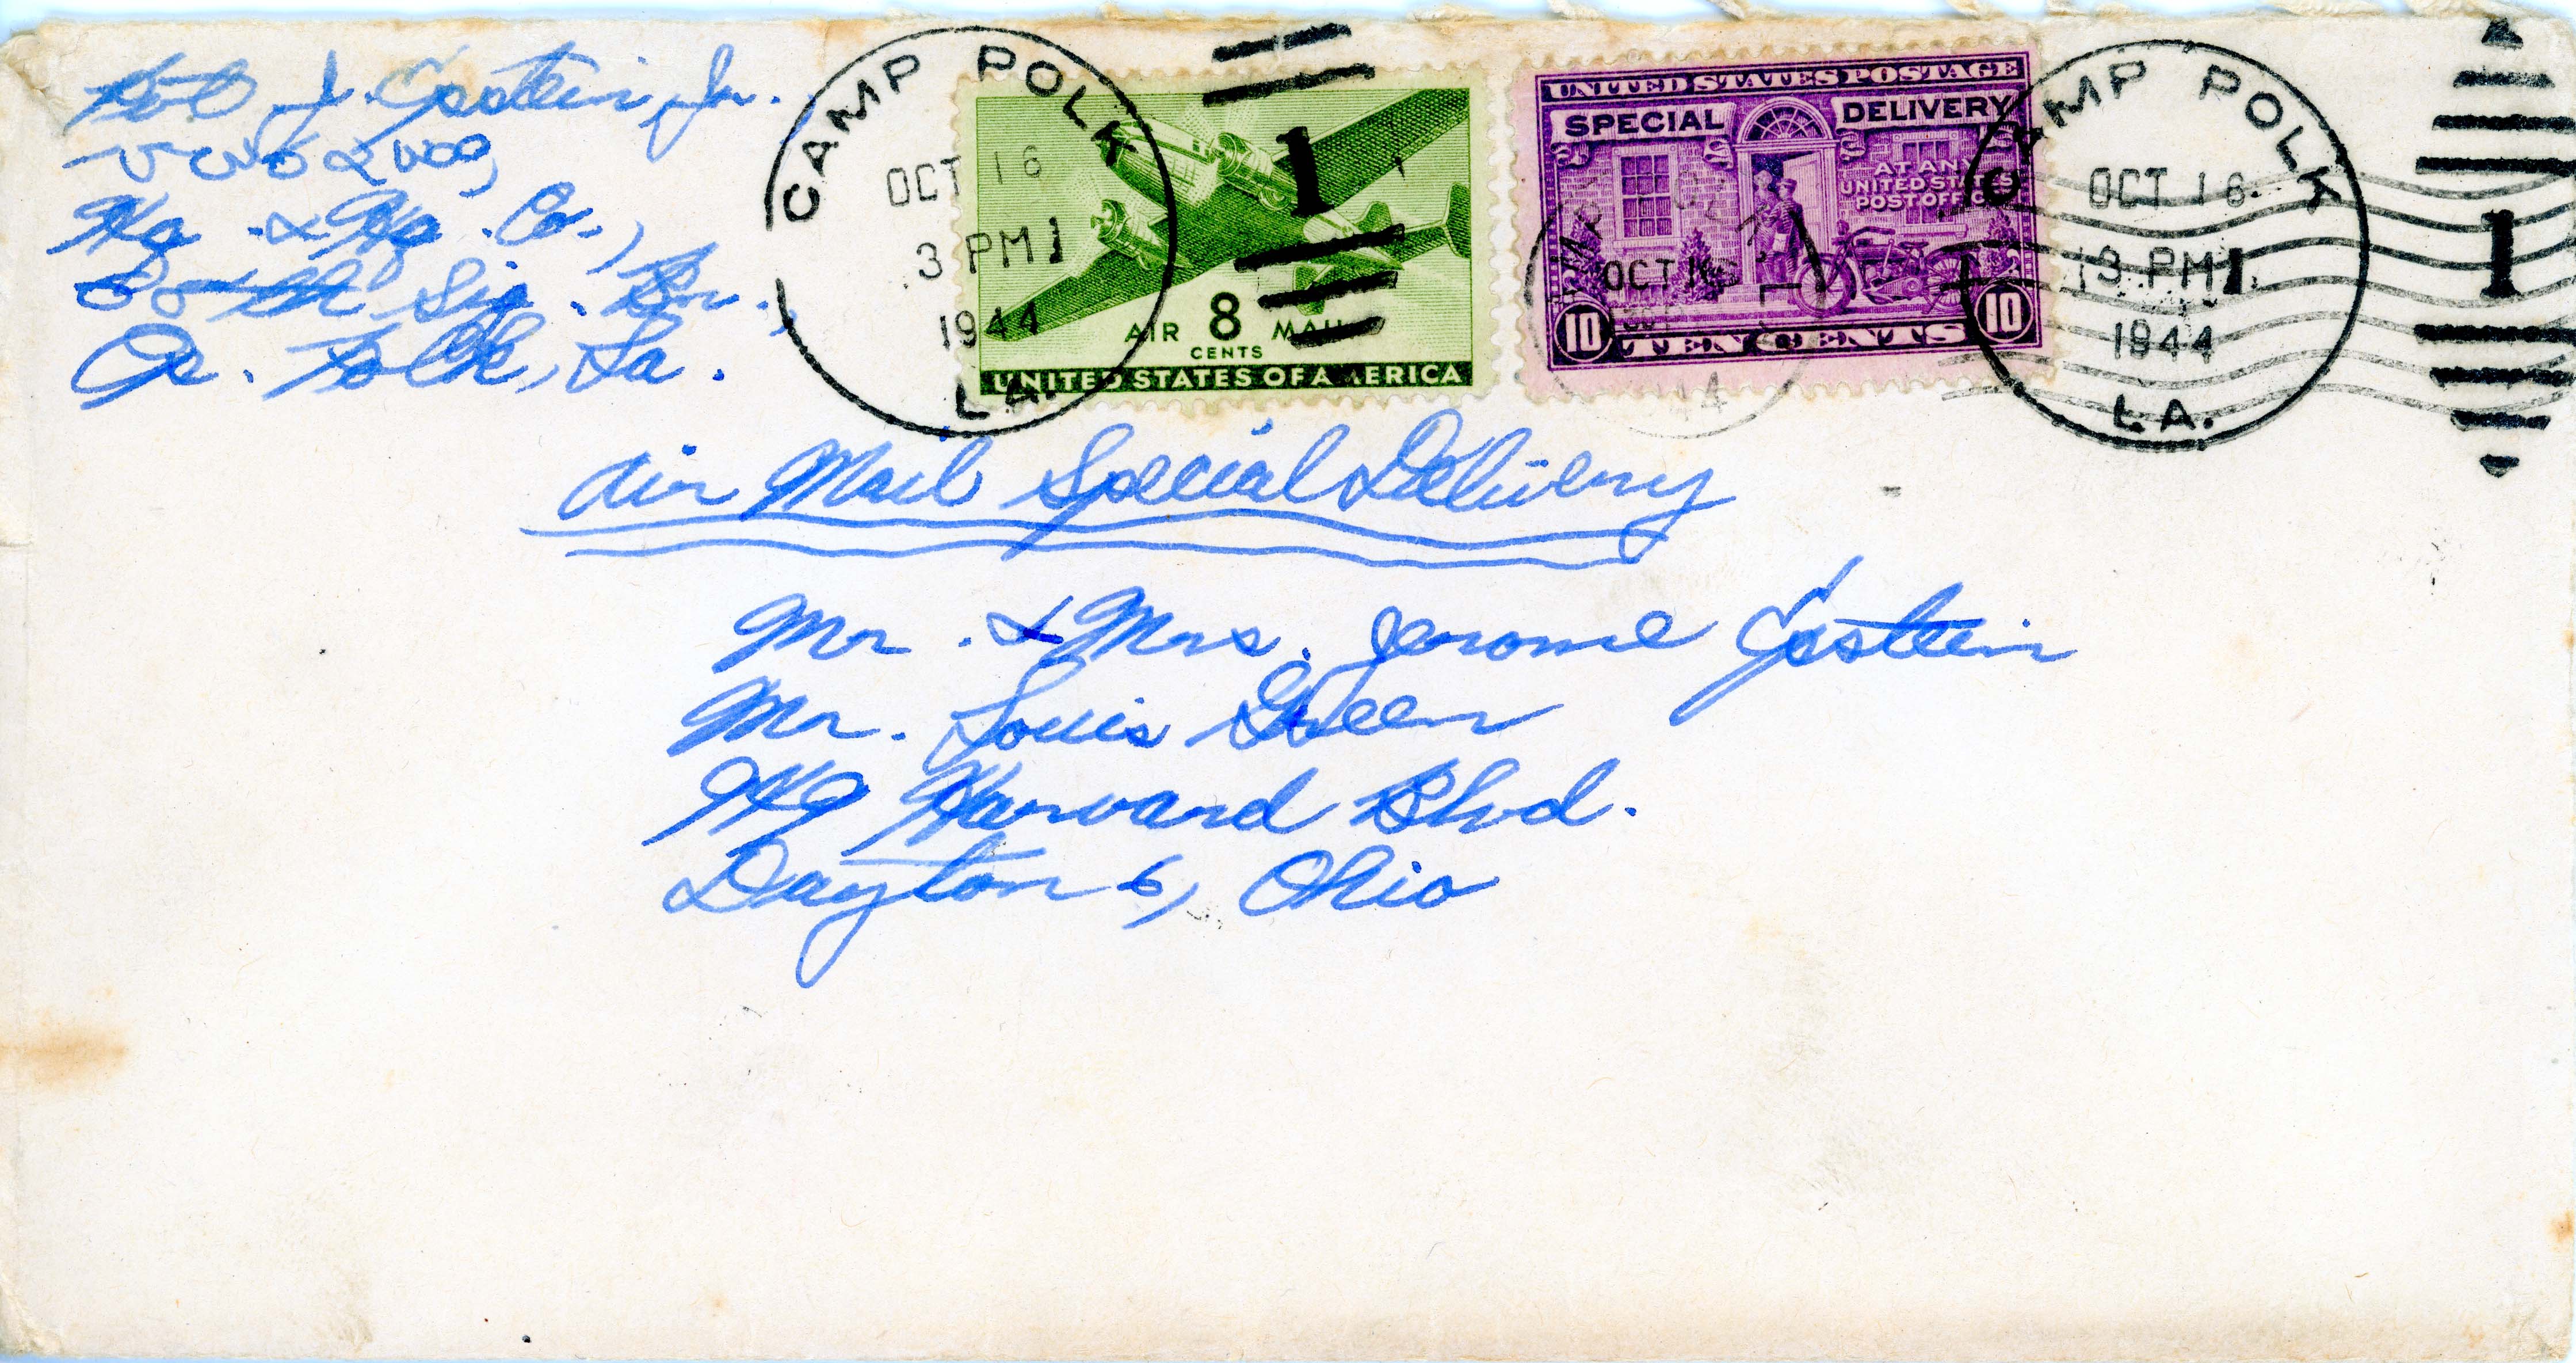 Pvt. J. Epstein, Jr.
Hq. & Hq. Co.,
Sig. Bn.,
Cp. Polk, La.
CAMP POLK
OCT 16
3 PM
1944
LA.
1
AIR 8 MAIL
CENTS
UNITED STATES OF AMERICA
UNITED STATES POSTAGE
SPECIAL DELIVERY
AT ANY
UNITED STATES
POST OFFICE
10 TEN CENTS 10
OCT 16
CAMP POLK
OCT 16
3 PM
1944
LA.
1
Air Mail Special Delivery
Mr. & Mrs. Jerome Epstein
Mr. Louis Green
Harvard Blvd.
Dayton 6, Ohio